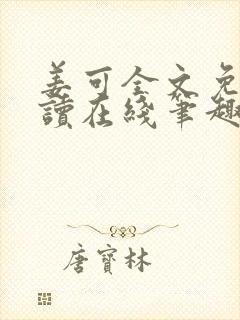 姜可全文免
讀在綫筆趣
唐寶林